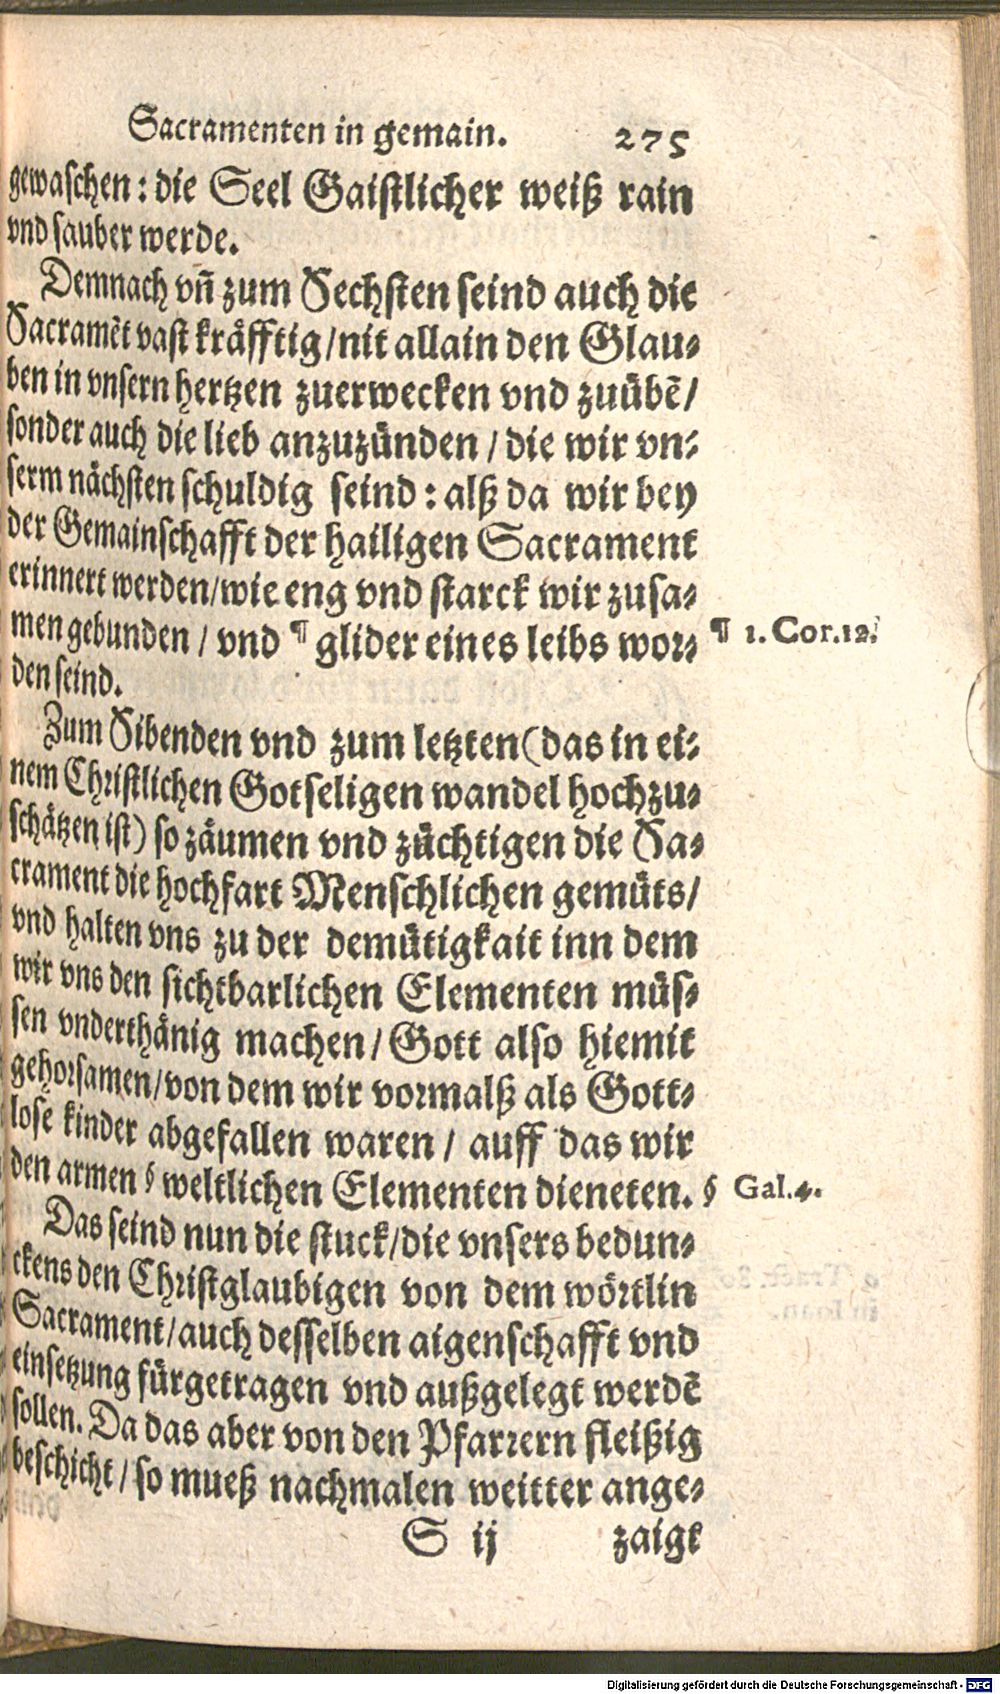 Sacramenten in gemain. 275
gewaschen: die Seel Gaistlicher weiß rain
vnd sauber werde.
Demnach vñ zum Sechsten seind auch die
Sacramẽt vast kräfftig/nit allain den Glau-
ben in vnsern hertzen zuerwecken vnd zuübẽ/
sonder auch die lieb anzuzünden / die wir vn-
serm nächsten schuldig seind: alß da wir bey
der Gemainschafft der hailigen Sacrament
erinnert werden/wie eng vnd starck wir zusa-
men gebunden / vnd ¶ glider eines leibs wor- ¶ 1. Cor.12.
den seind.
Zum Sibenden vnd zum letzten (das in ei-
nem Christlichen Gotseligen wandel hochzu-
schätzen ist) so zäumen vnd züchtigen die Sa-
crament die hochfart Menschlichen gemüts/
vnd halten vns zu der demütigkait inn dem
wir vns den sichtbarlichen Elementen müs-
sen vnderthänig machen/Gott also hiemit
gehorsamen/von dem wir vormalß als Gott-
lose kinder abgefallen waren / auff das wir
den armen § weltlichen Elementen dieneten. § Gal.4.
Das seind nun die stuck/die vnsers bedun-
ckens den Christglaubigen von dem wörtlin
Sacrament/auch desselben aigenschafft vnd
einsetzung fürgetragen vnd außgelegt werdẽ
sollen. Da das aber von den Pfarrern fleißig
beschicht/so mueß nachmalen weitter ange-
S ij zaigt
Digitalisierung gefördert durch die Deutsche Forschungsgemeinschaft - DFG